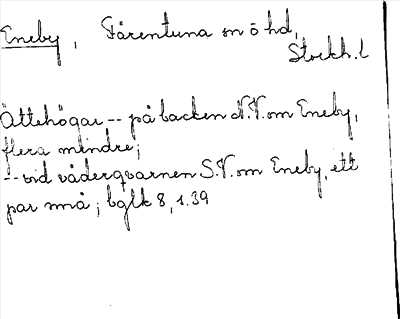 Eneby, Färentuna sn ö hd,
Stockh. l
Ättehögar -- på backen N.V. om Eneby,
flera mindre;
-- vid väderqvarnen S.V. om Eneby, ett
par små; bglk 8, s. 39